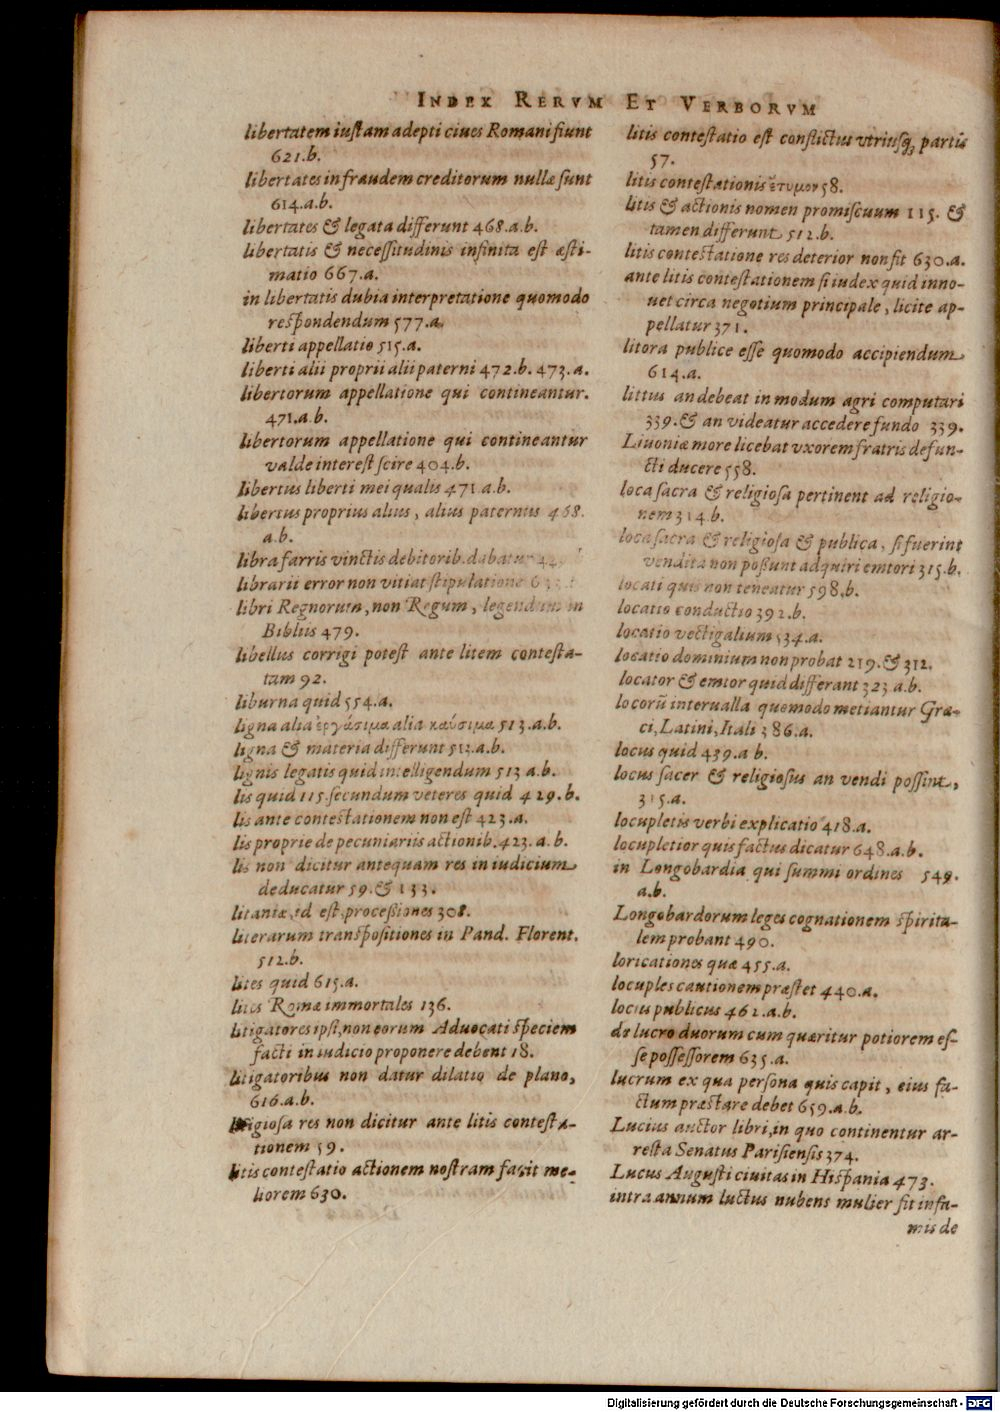 INDEX RERVM ET VERBORVM
libertatem iustam adepti ciues Romani fiunt
621.b.
libertates in fraudem creditorum nullæ sunt
614.a.b.
libertates & legata differunt 468.a.b.
libertatis & necessitudinis infinita est æsti-
matio 667.a.
in libertatis dubia interpretatione quomodo
respondendum 577.a.
liberti appellatio 515.a.
liberti alii proprii alii paterni 472.b. 473.a.
libertorum appellatione qui contineantur.
471.a.b.
libertorum appellatione qui contineantur
valde interest scire 404.b.
libertus liberti mei qualis 471 a.b.
libertus proprius alius, alius paternus 468.
a.b.
libra farris vinctis debitorib. dabatur
librarii error non vitiat stipulatione
libri Regnorum, non Regum, legendum in
Bibliis 479.
libellus corrigi potest ante litem contesta-
tam 92.
liburna quid 554.a.
ligna alia ἐργάσιμα alia καύσιμα 513.a.b.
ligna & materia differunt 512.a.b.
lignis legatis quid intelligendum 513 a.b.
lis quid 115. secundum veteres quid 429.b.
lis ante contestationem non est 423.a.
lis proprie de pecuniariis actionib. 423.a.b.
lis non dicitur antequam res in iudicium
deducatur 59. & 133.
litaniæ, id est, processiones 308.
literarum transpositiones in Pand. Florent.
512.b.
lites quid 615.a.
lites Romæ immortales 136.
litigatores ipsi, non eorum Aduocati speciem
facti in iudicio proponere debent 18.
litigatoribus non datur dilatio de plano,
616.a.b.
litigiosa res non dicitur ante litis contesta-
tionem 59.
litis contestatio actionem nostram facit me-
liorem 630.
litis contestatio est conflictus vtriusq; partis
57.
litis contestationis ἔτυμον 58.
litis & actionis nomen promiscuum 115. &
tamen differunt 512.b.
litis contestatione res deterior non fit 630.a.
ante litis contestationem si iudex quid inno-
uet circa negotium principale, licite ap-
pellatur 371.
litora publice esse quomodo accipiendum
614.a.
littus an debeat in modum agri computari
339. & an videatur accedere fundo 339.
Liuoniæ more licebat vxorem fratris defun-
cti ducere 558.
loca sacra & religiosa pertinent ad religio-
nem 314.b.
loca sacra & religiosa & publica, si fuerint
vendita non possunt adquiri emtori 315.b.
locati quis non teneatur 598.b.
locatio conductio 392.b.
locatio vectigalium 534.a.
locatio dominium non probat 219. & 312.
locator & emtor quid differant 323 a.b.
locorū interualla quomodo metiantur Græ-
ci, Latini, Itali 386.a.
locus quid 439.a b.
locus sacer & religiosus an vendi possint,
315.a.
locupletis verbi explicatio 418.a.
locupletior quis factus dicatur 648.a.b.
in Longobardia qui summi ordines 549.
a.b.
Longobardorum leges cognationem spirita-
lem probant 490.
loricationes quæ 455.a.
locuples cautionem præstet 440.a.
locus publicus 462.a.b.
de lucro duorum cum quæritur potiorem es-
se possessorem 635.a.
lucrum ex qua persona quis capit, eius fa-
ctum præstare debet 659.a.b.
Lucius auctor libri, in quo continentur ar-
resta Senatus Parisiensis 374.
Lucus Augusti ciuitas in Hispania 473.
intra annum luctus nubens mulier fit infa-
mis de
Digitalisierung gefördert durch die Deutsche Forschungsgemeinschaft - DFG